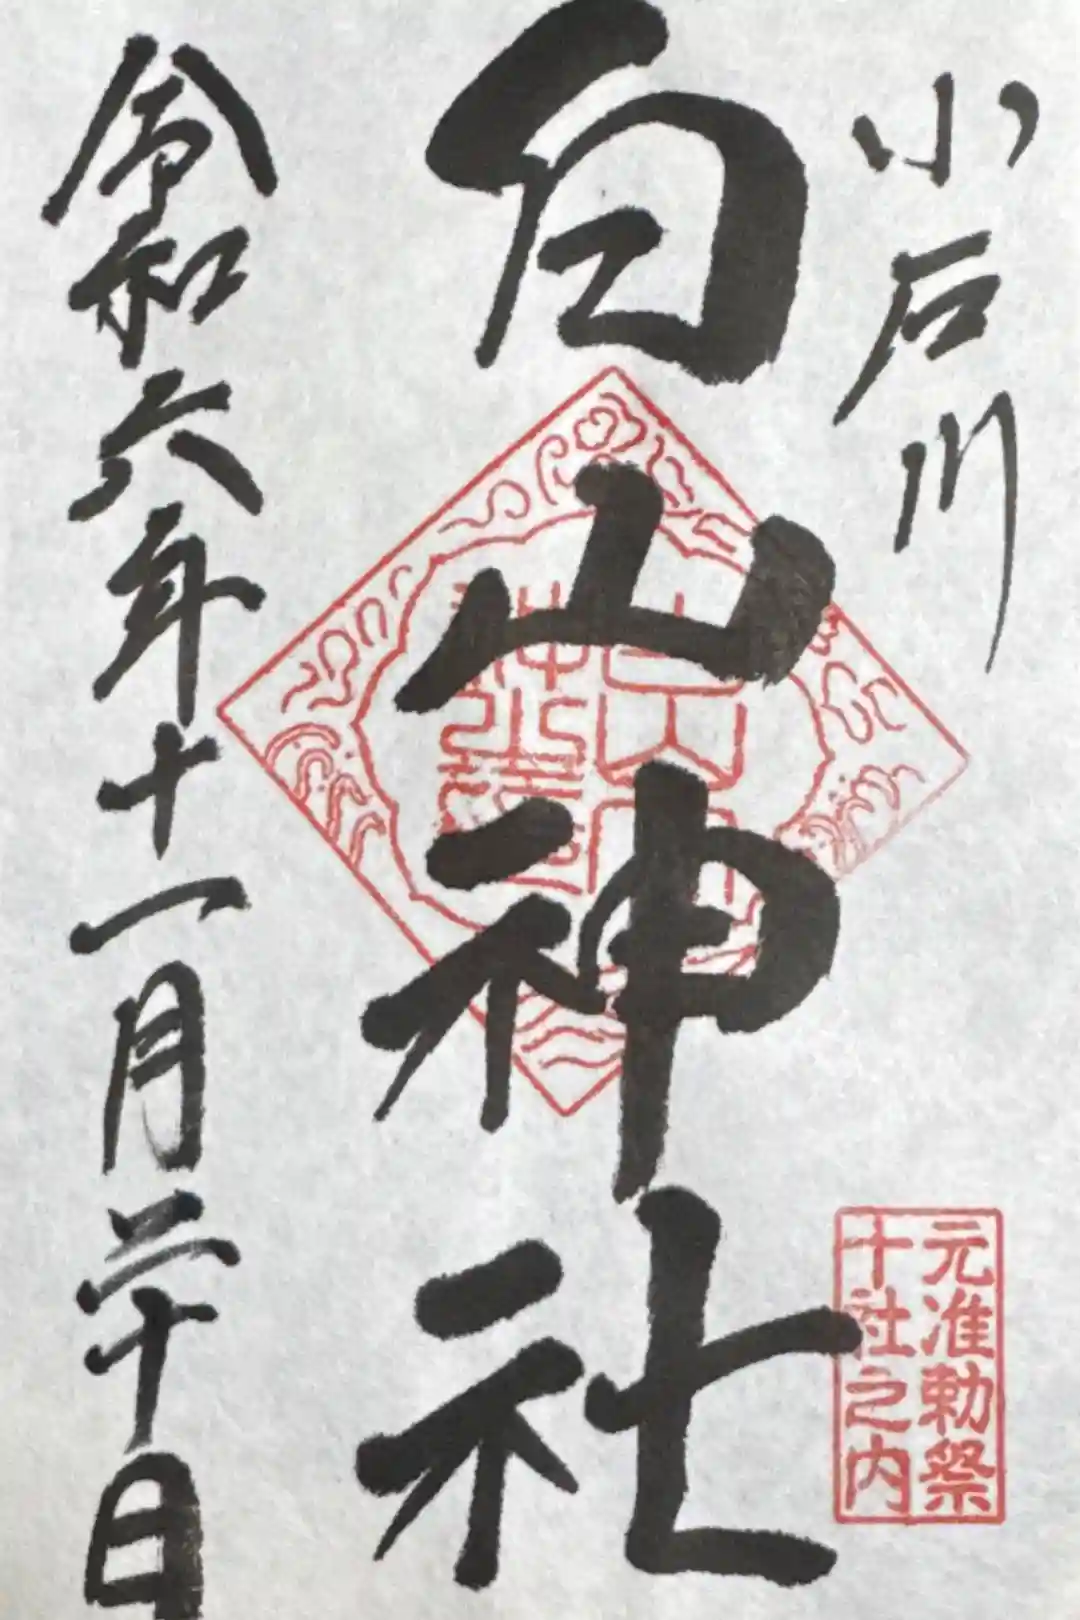 小石川
元准勅祭
十社之内
白山神社
令和六年十一月三十日